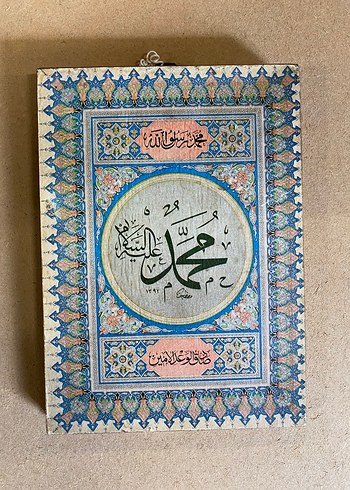 محمد رسول الله
محمد عليه السلام
ح م م د
١٣٩٢
صادق الوعد الامين